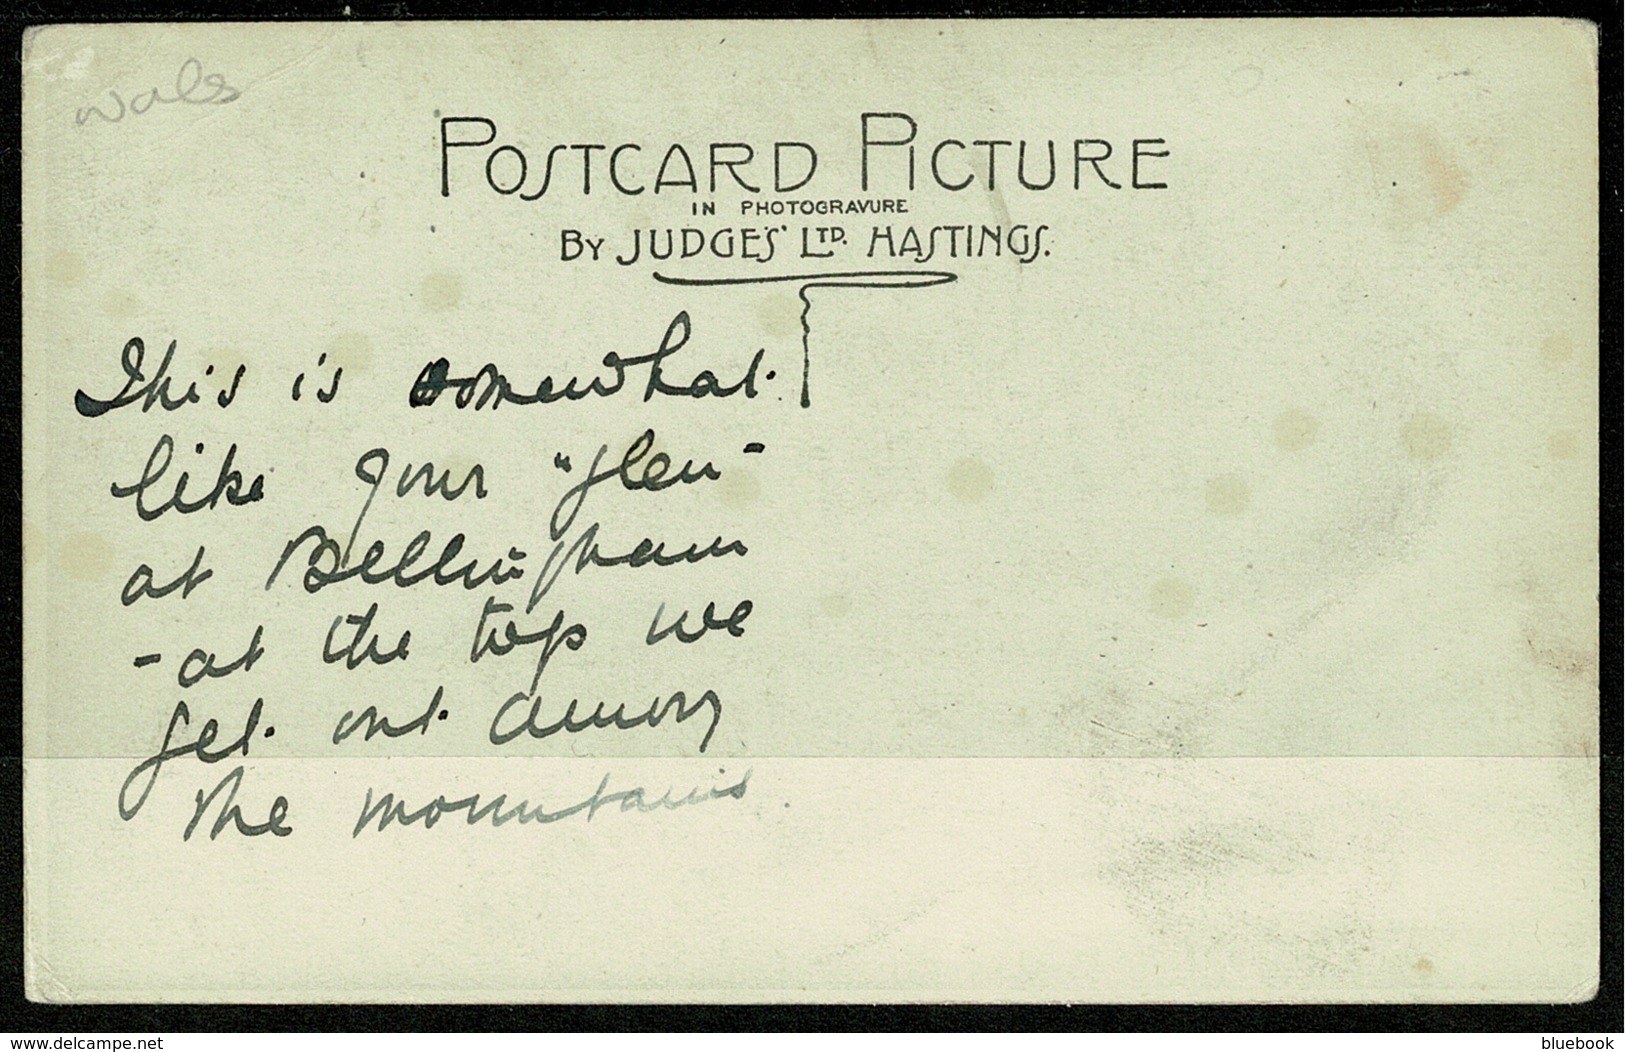 Wales
POSTCARD PICTURE
IN PHOTOGRAVURE
BY JUDGES' LTD. HASTINGS.
This is somewhat
like your "glen"
at Bellingham
- at the top we
get out among
the mountains
www.delcampe.net
bluebook